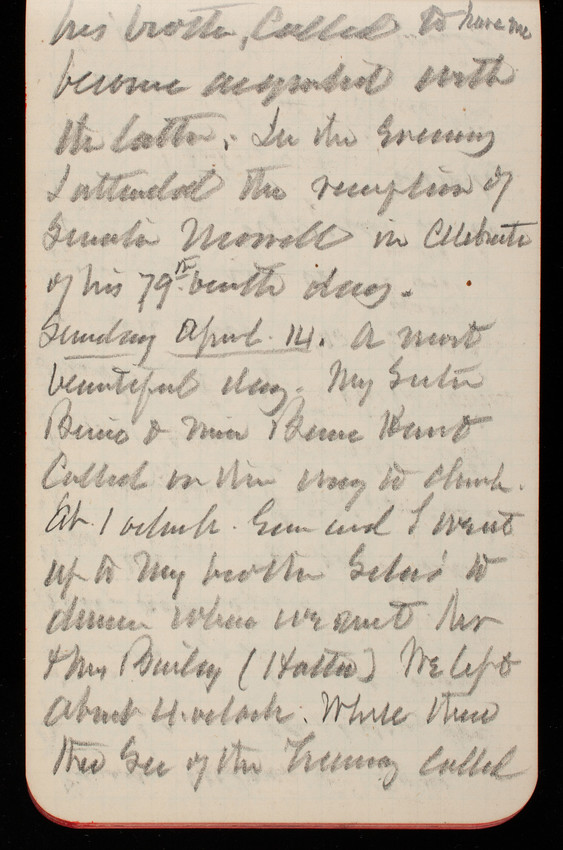 his brother, Called to have me
become acquainted with
the latter. In the Evening
I attended the reception of
Senator Morrell in Celebrate
of his 79th birth day.
Sunday April 14. A most
beautiful day. My Sister
& Miss
Called on their way to church.
At 1 oclock. Em and I went
up to My brother Silas' to
dinner where we met Mr
& Mrs Bailey (Hattie) We left
about 4 oclock. While there
the Sec of the Treasury Called